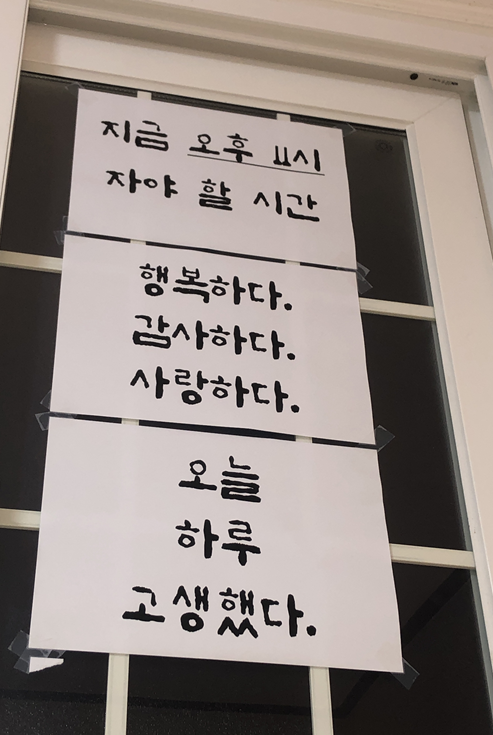 지금 오후 11시
자야 할 시간
행복하다.
감사하다.
사랑하다.
오늘
하루
고생했다.